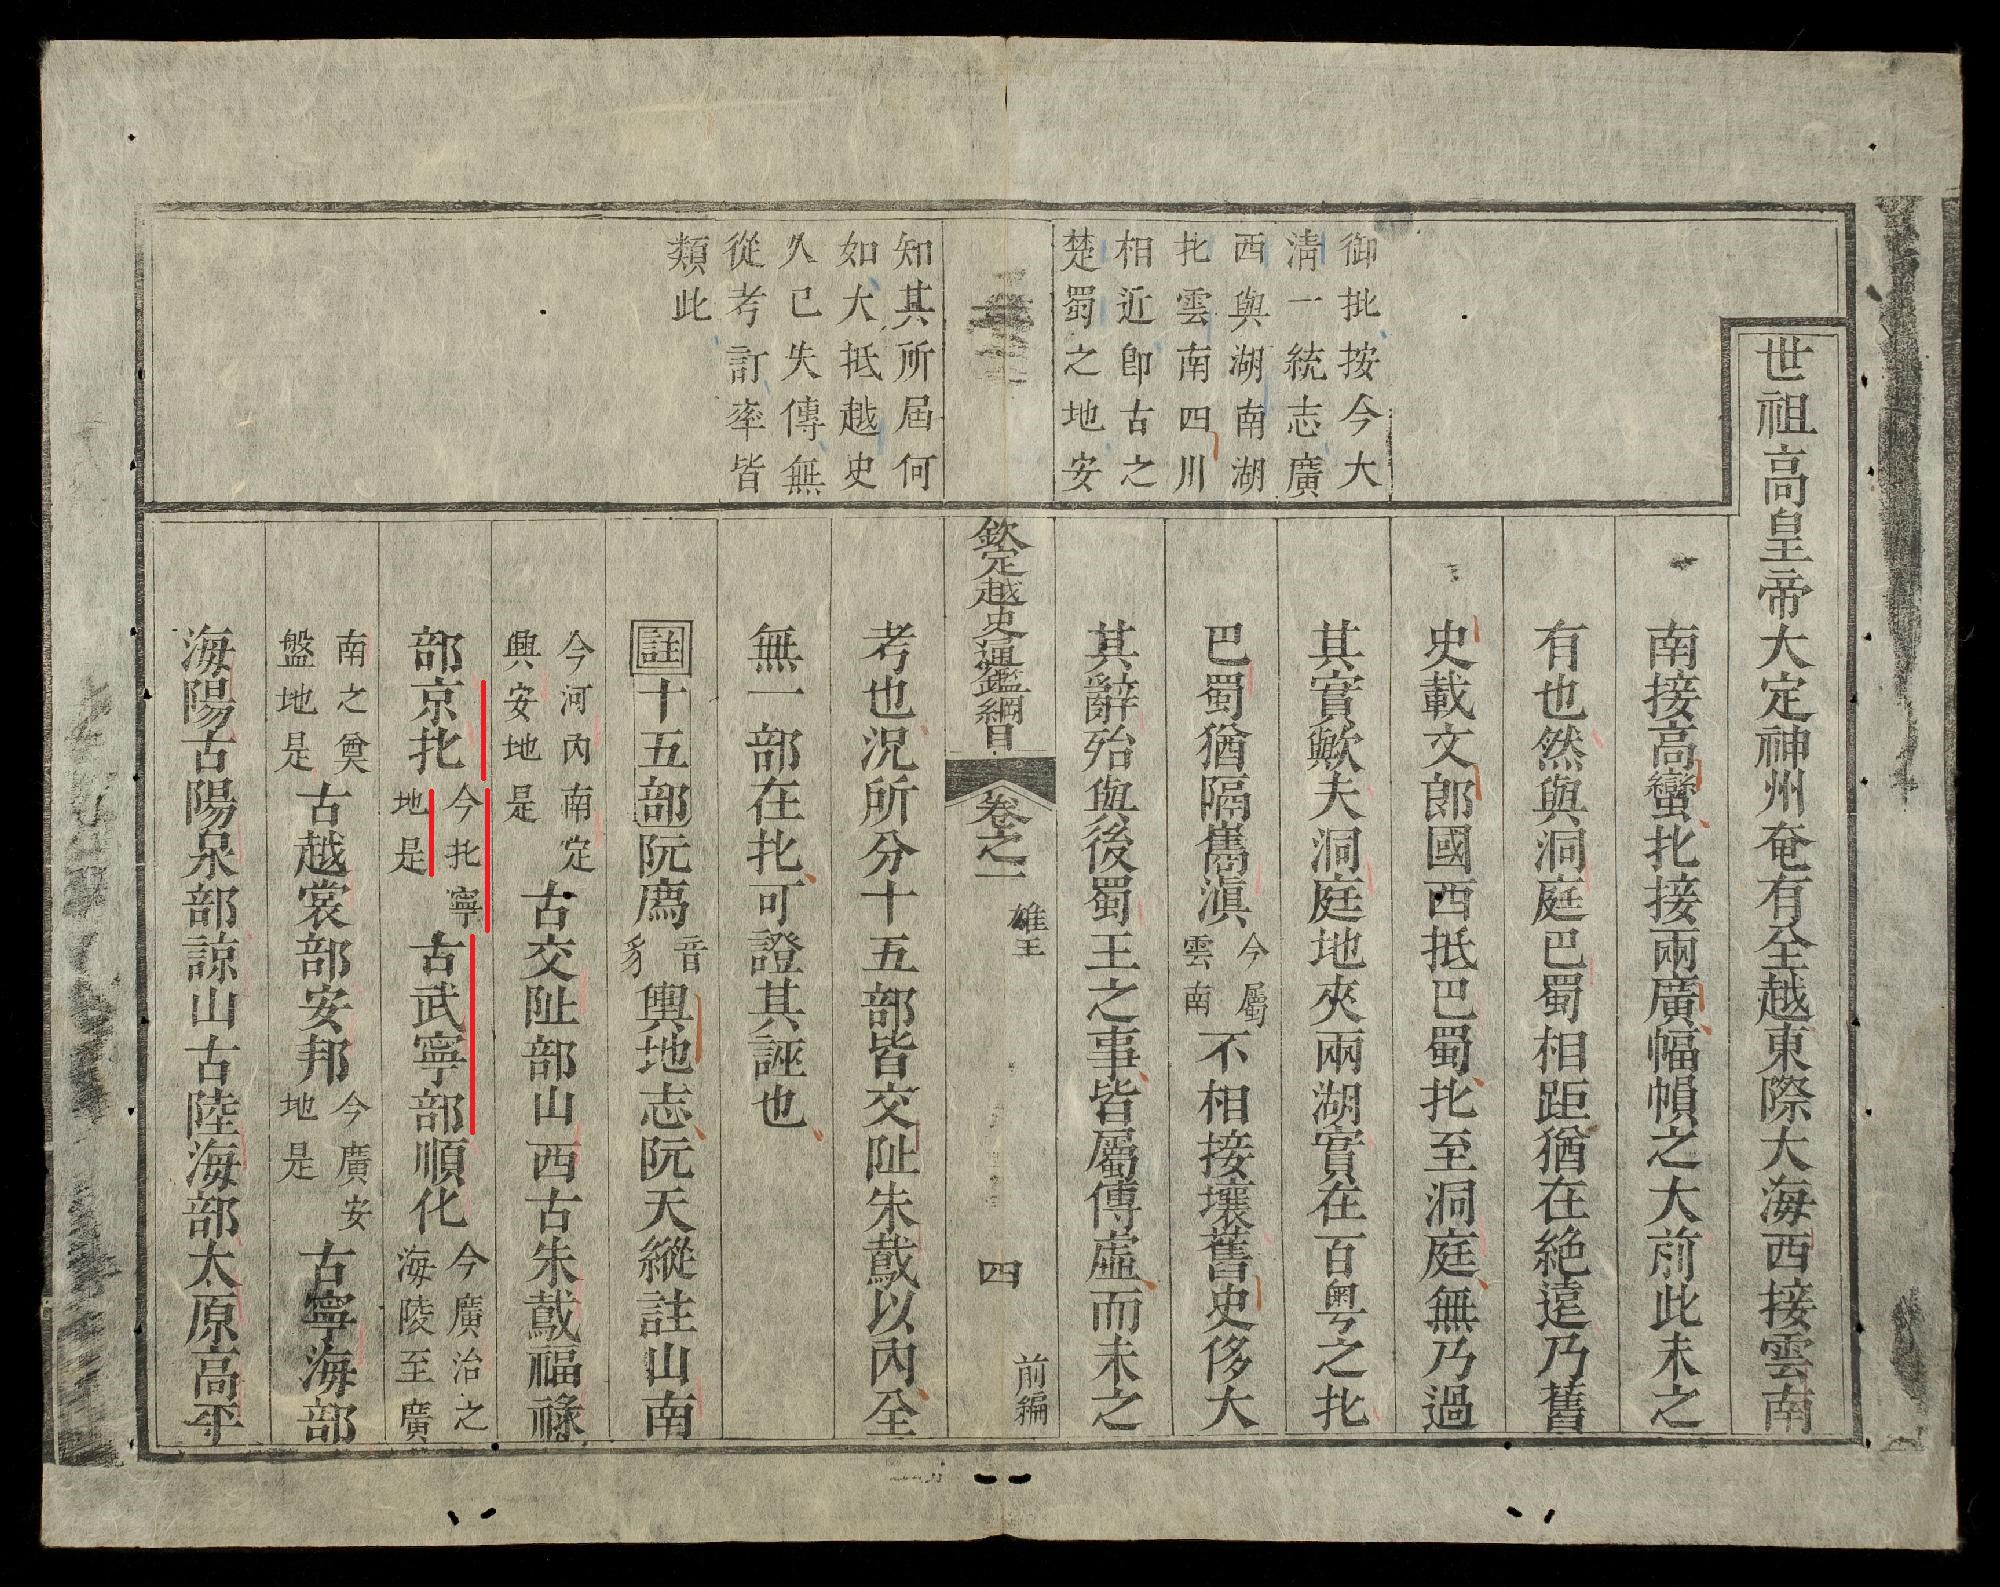 御批按今大
清一統志廣
西與湖南湖
北雲南四川
相近卽古之
楚蜀之地安
世祖高皇帝大定神州奄有全越東際大海西接雲南
南接高蠻北接兩廣幅幀之大前此未之
有也然與洞庭巴蜀相距猶在絕遠乃舊
史載文郎國西抵巴蜀北至洞庭無乃過
其實歟夫洞庭地夾兩湖實在百粵之北
巴蜀猶隔雟滇今屬雲南不相接壤舊史侈大
其辭殆與後蜀王之事皆屬傳虛而未之
欽定越史通鑑綱目 卷之一 雄王 四 前編
知其所屆何
如大抵越史
久已失傳無
從考訂率皆
類此
考也況所分十五部皆交趾朱䳒以內全
無一部在北可證其誣也
註十五部阮廌音豸輿地志阮天縱註山南
今河內南定興安地是古交趾部山西古朱䳒福祿
部京北今北寧地是古武寧部順化今廣治之海陵至廣
南之奠盤地是古越裳部安邦今廣安地是古寧海部
海陽古陽泉部諒山古陸海部太原高平